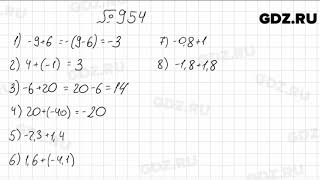 №954
GDZ.RU
1) -9+6 = -(9-6) = -3
2) 4+(-1) = 3
3) -6+20 = 20-6 = 14
4) 20+(-40) = -20
5) -2,3+1,4
6) 1,6+(-4,1)
7) -0,8+1
8) -1,8+1,8